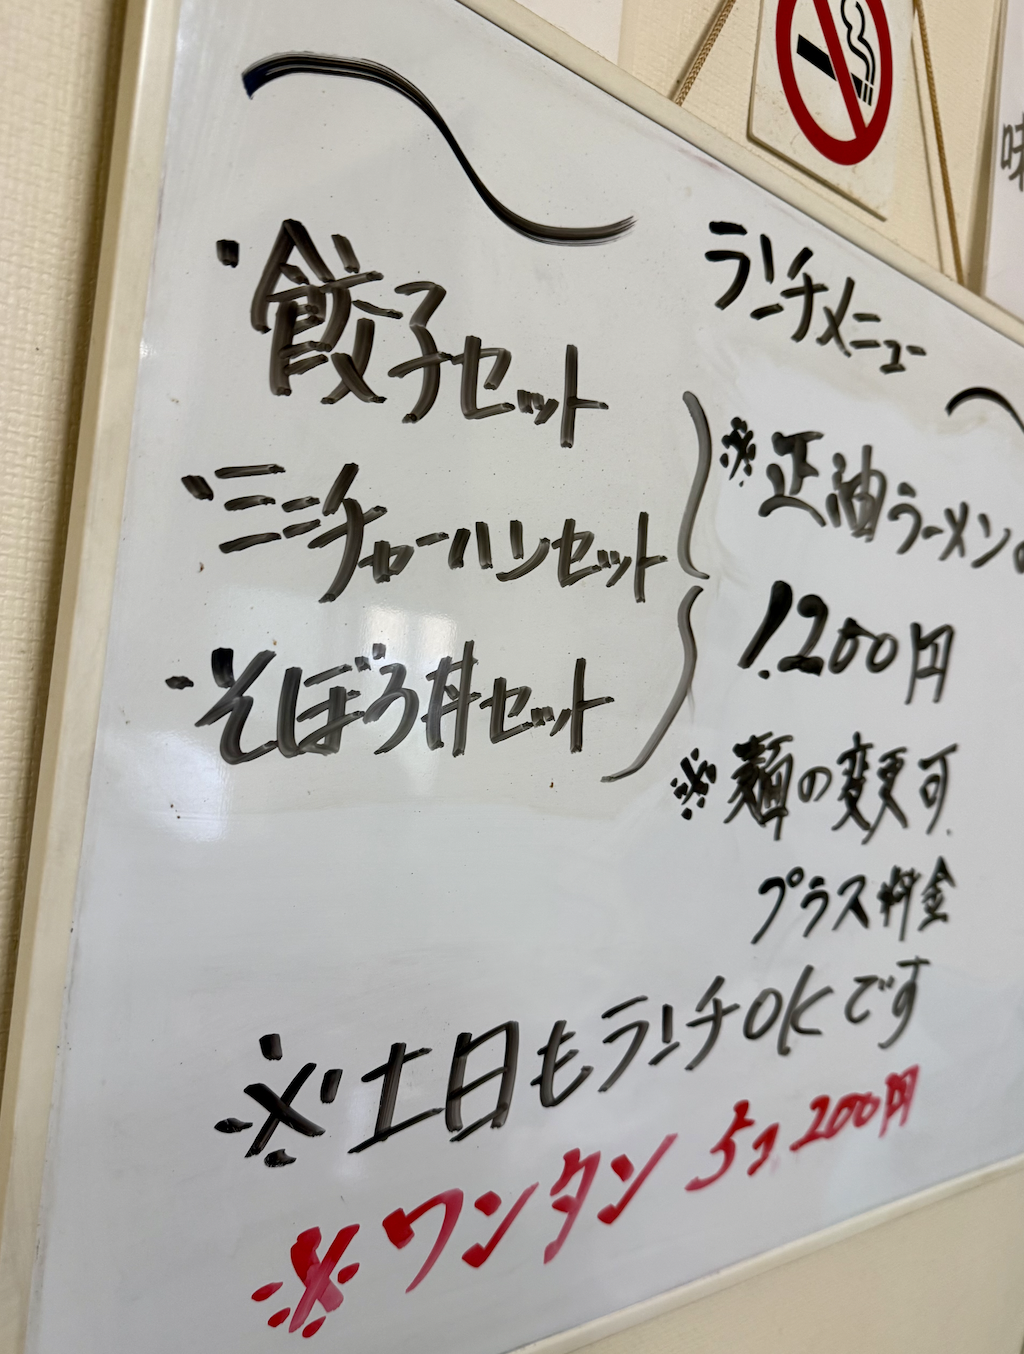 ランチメニュー
・餃子セット
・ミニチャーハンセット
・そぼろ丼セット
※正油ラーメンの
1.200円
※麺の変更可
プラス料金
※土日もランチOKです
※ワンタン5コ200円
味